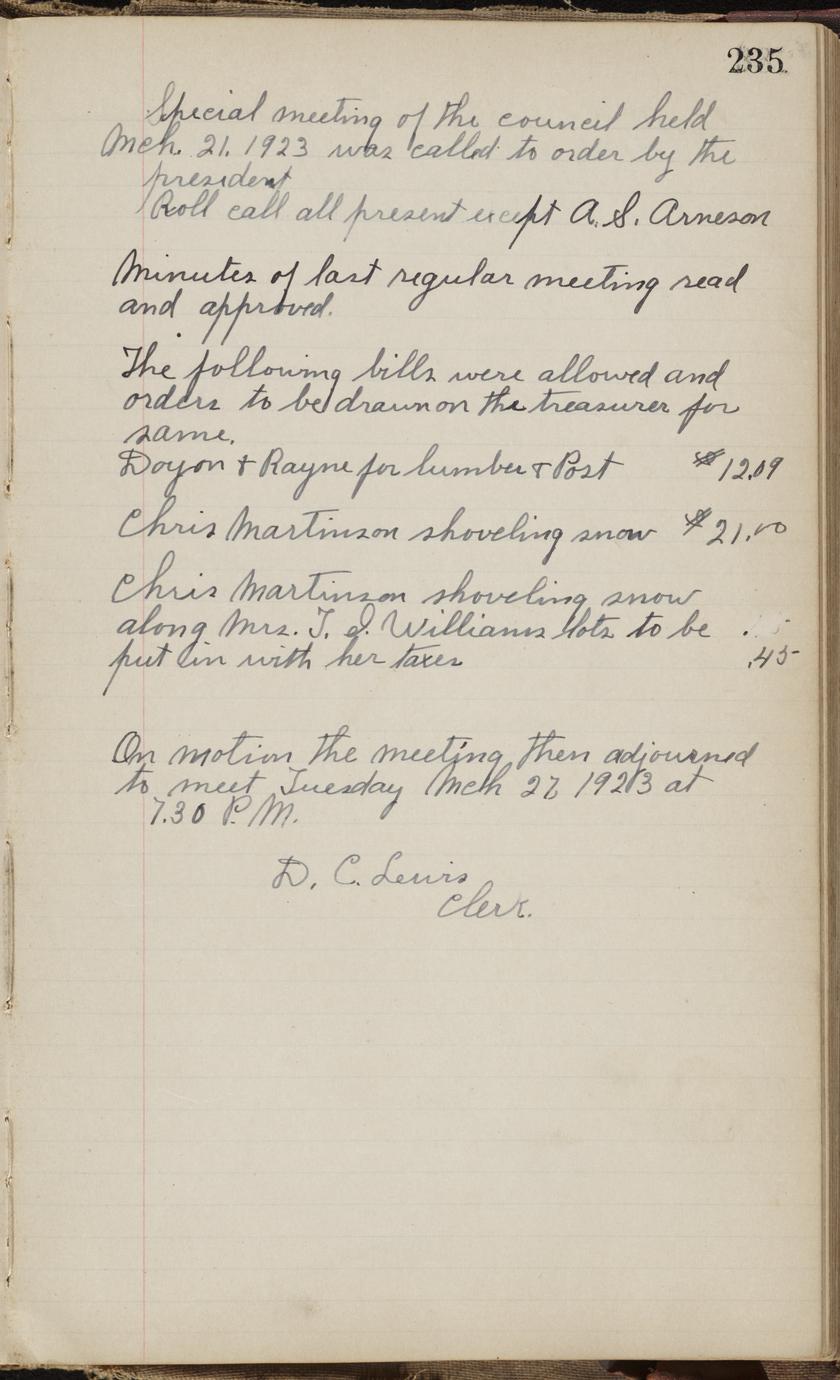 235
Special meeting of the council held
Mch. 21. 1923 was called to order by the
president
Roll call all present except A. S. Arneson
Minutes of last regular meeting read
and approved.
The following bills were allowed and
orders to be drawn on the treasurer for
same.
Doyon & Rayne for lumber & Post $12.09
Chris Martinson shoveling snow $21.00
Chris Martinson shoveling snow
along Mrs. T. J. Williams lots to be
put in with her taxes .45
On motion the meeting then adjourned
to meet Tuesday Mch 27, 1923 at
7.30 P. M.
D. C. Lewis
Clerk.